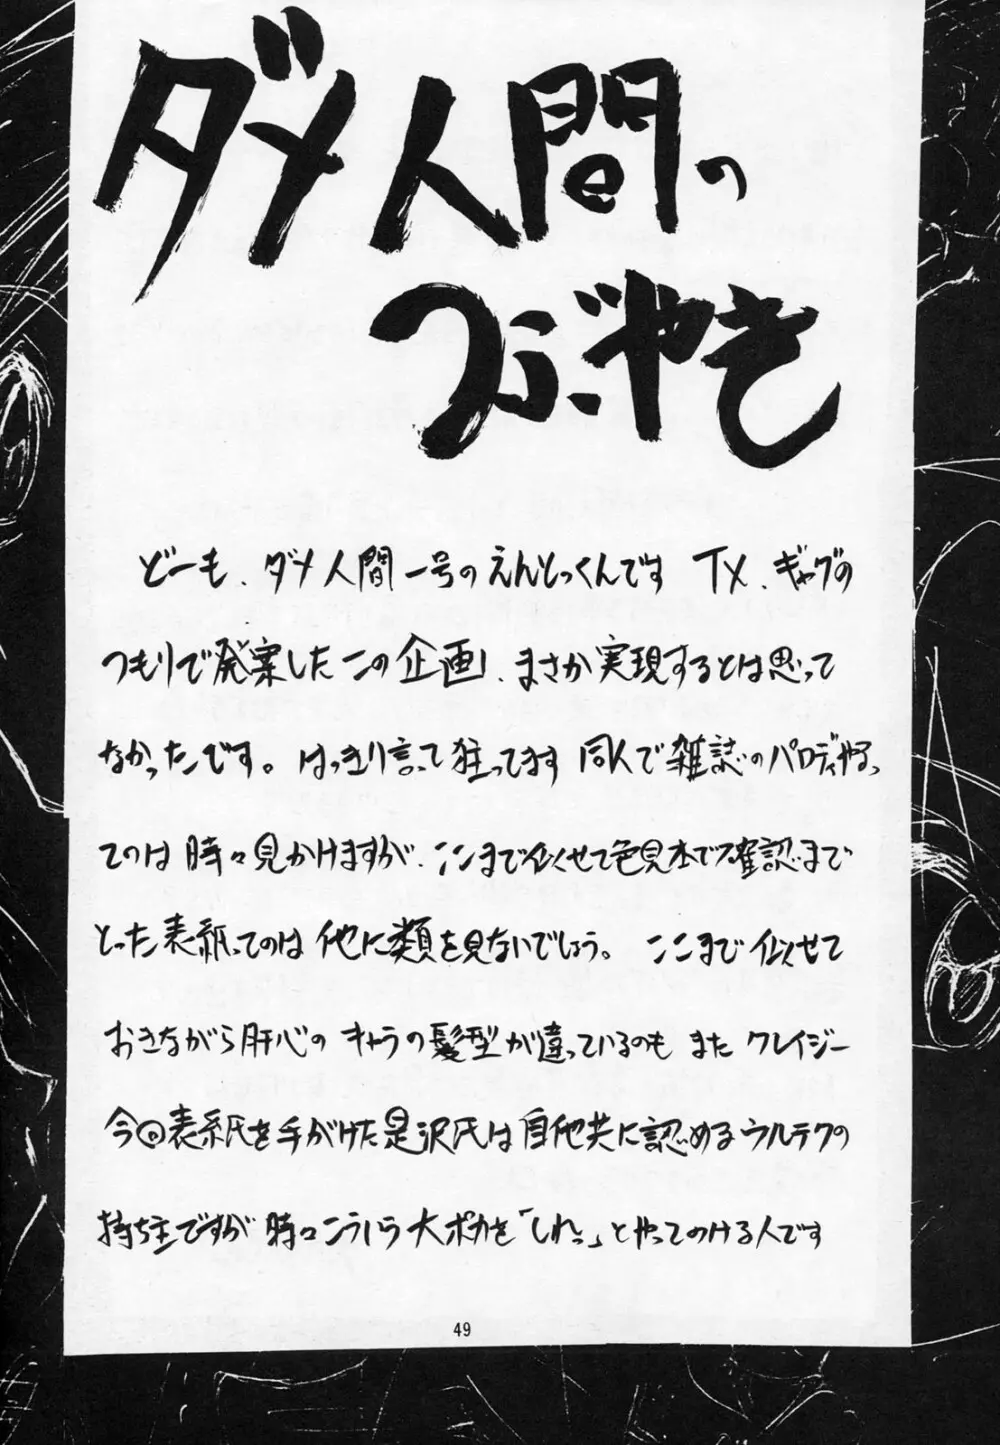 ダメ人間の
つぶやき
どーも、ダメ人間一号のえんどっくんです TX、ギャグの
つもりで発案したこの企画、まさか実現するとは思って
なかったです。はっきり言って狂ってます 同人で雑誌のパロディやるっ
てのは時々見かけますが、ここまで似せて色見本で確認まで
とった表紙ってのは他に類を見ないでしょう。ここまで似せて
おきながら肝心のキャラの髪型が違っているのもまたクレイジー
今回表紙を手がけた是沢氏は自他共に認めるウルテクの
持ち主ですが時々こういう大ポカを「しれっ」とやってのける人です
49